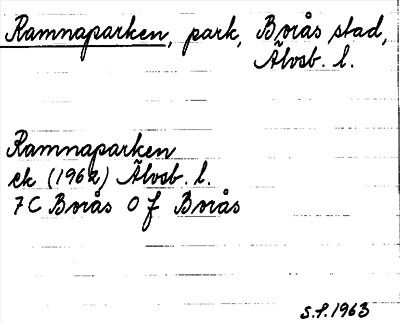 Ramnaparken, park, Borås stad,
Älvsb. l.
Ramnaparken
ek (1962) Älvsb. l.
7C Borås 0 f Borås
S.P. 1963